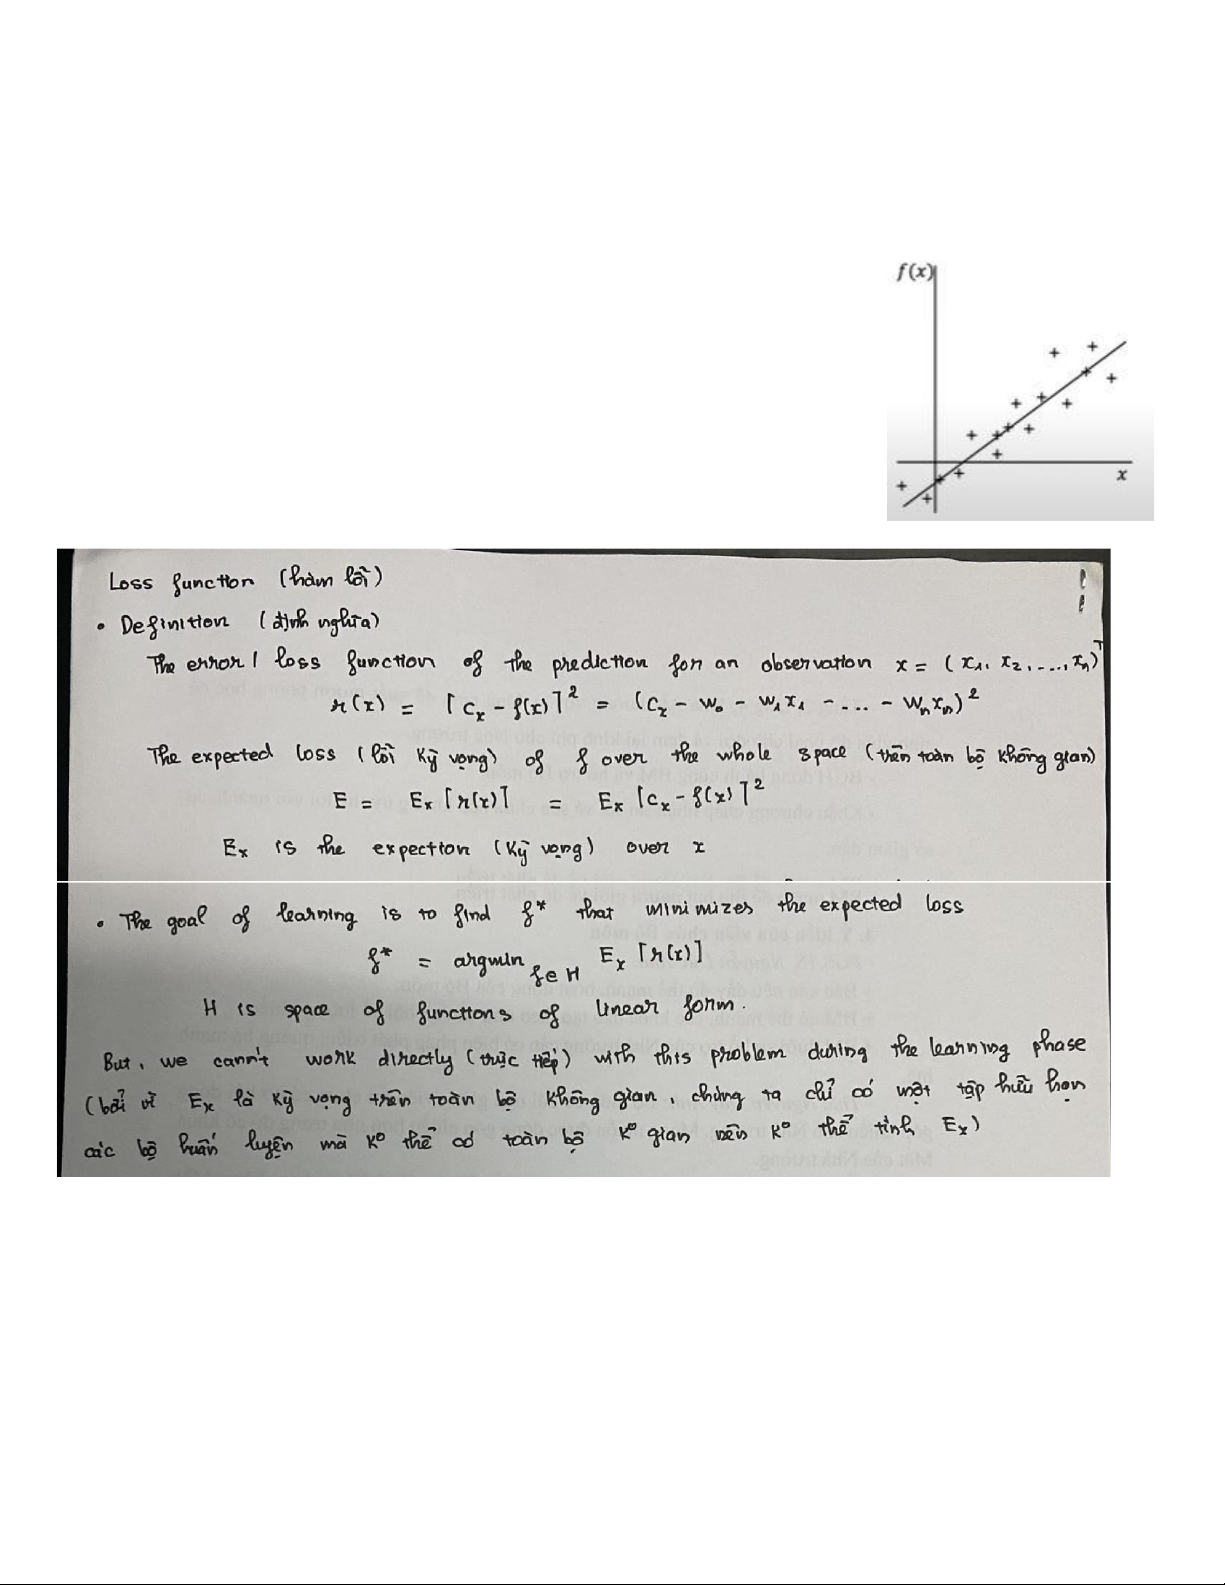 f(x)
x
Loss function (hàm lỗi)
• Definition (định nghĩa)
The error / loss function of the prediction for an observation x = (x₁, x₂, ..., xₙ)ᵀ
r(x) = [cₓ - f(x)]² = (cₓ - w₀ - w₁x₁ - ... - wₙxₙ)²
The expected loss (lỗi kỳ vọng) of f over the whole space (trên toàn bộ không gian)
E = Eₓ[r(x)] = Eₓ[cₓ - f(x)]²
Eₓ is the expection (kỳ vọng) over x
• The goal of learning is to find f* that minimizes the expected loss
f* = argmin f∈H Eₓ[r(x)]
H is space of functions of linear form.
But, we cann't work directly (trực tiếp) with this problem during the learning phase
(bởi vì Eₓ là kỳ vọng trên toàn bộ không gian, chúng ta chỉ có một tập hữu hạn
các bộ huấn luyện mà k⁰ thể có toàn bộ k⁰ gian nên k⁰ thể tính Eₓ)